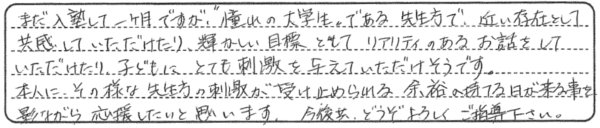 まだ入塾して一ヶ月ですが、“憧れの大学生„である先生方で、近い存在として
共感していただけたり、輝かしい目標としてリアリティのあるお話をして
いただけたり、子どもにとても刺激を与えていただけそうです。
本人にその様な先生方の刺激が受け止められる余裕の持てる日が来る事を
影ながら応援したいと思います。今後共、どうぞよろしくご指導下さい。